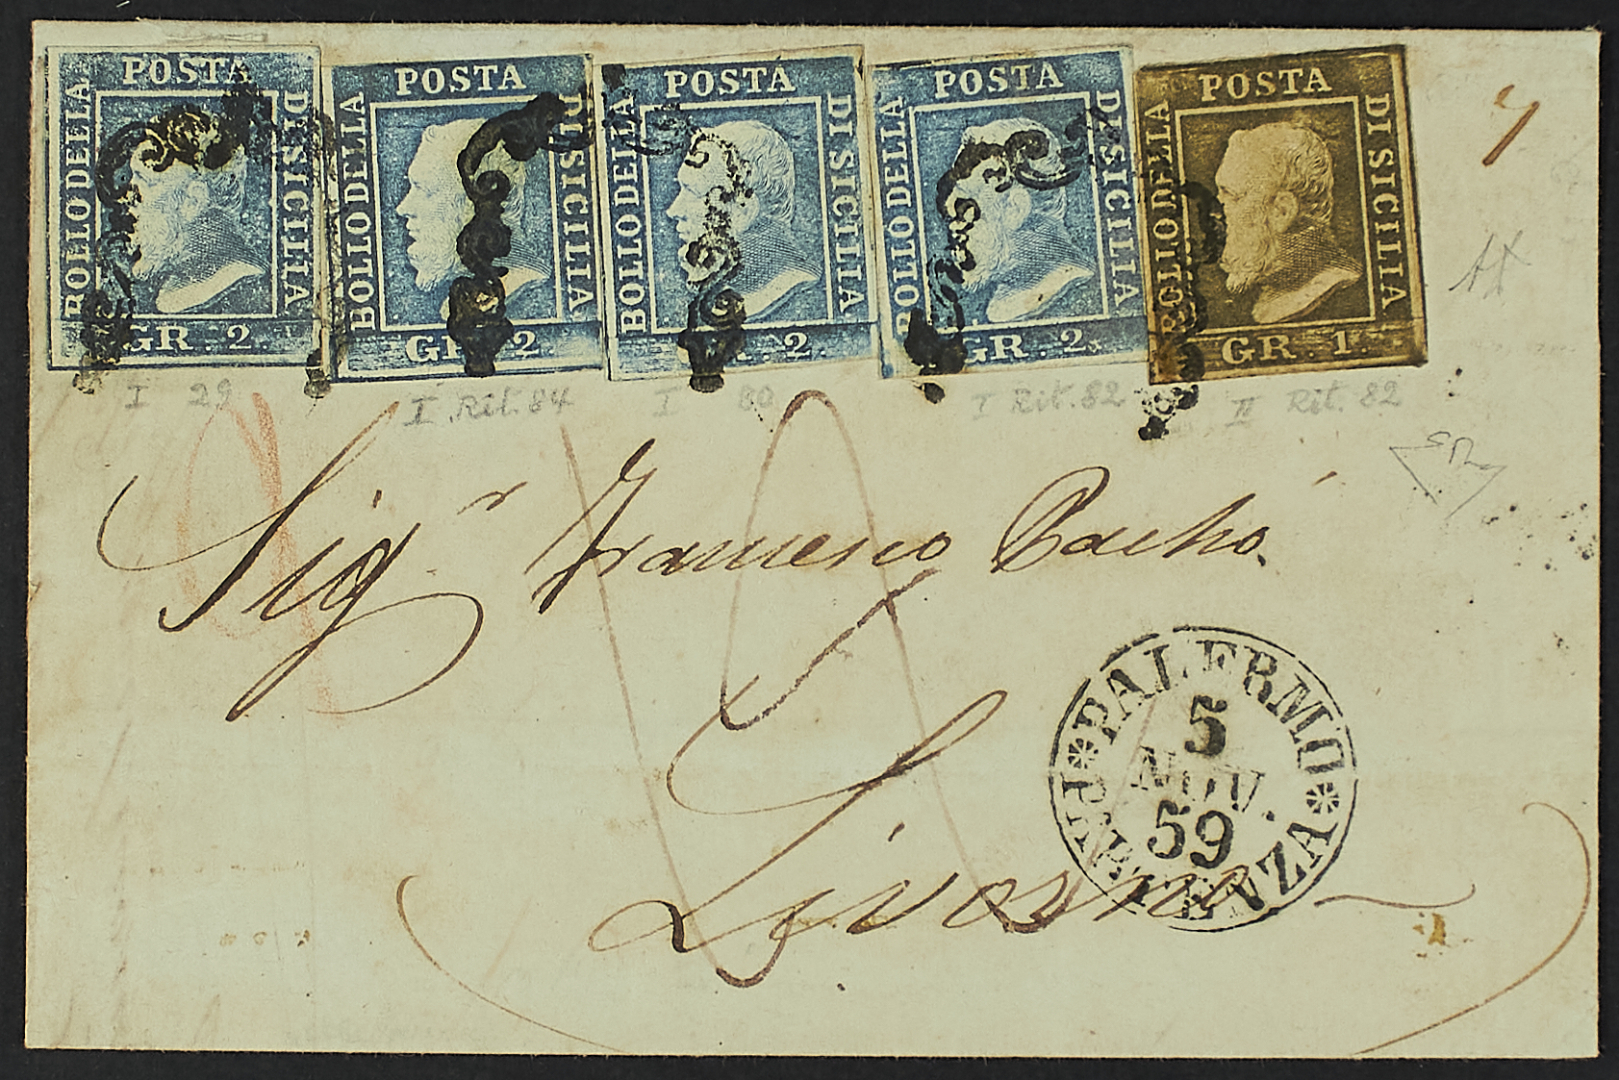 POSTA
BOLLO DELLA
DI SICILIA
GR. 2.
POSTA
BOLLO DELLA
DI SICILIA
GR. 2.
POSTA
BOLLO DELLA
DI SICILIA
GR. 2.
POSTA
BOLLO DELLA
DI SICILIA
GR. 2.
POSTA
BOLLO DELLA
DI SICILIA
GR. 1.
I 29
I Rit. 84
I 80
I Rit. 82
II Rit. 82
Sigr Francesco Pacho
Livorno
PALERMO
5
NOV.
59
PARTENZA